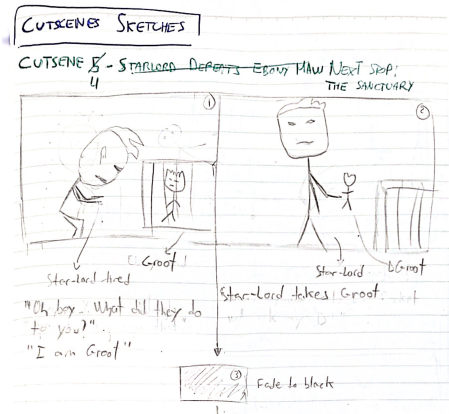 CUTSCENES SKETCHES
CUTSENE 5 - STARLORD DEFEATS EBONY MAW NEXT STOP:
4
THE SANCTUARY
1
2
Groot
Star-Lord tired
Star-Lord
Groot
"Oh boy... What did they do
to you?"
"I am Groot"
Star-Lord takes Groot
3
Fade to black